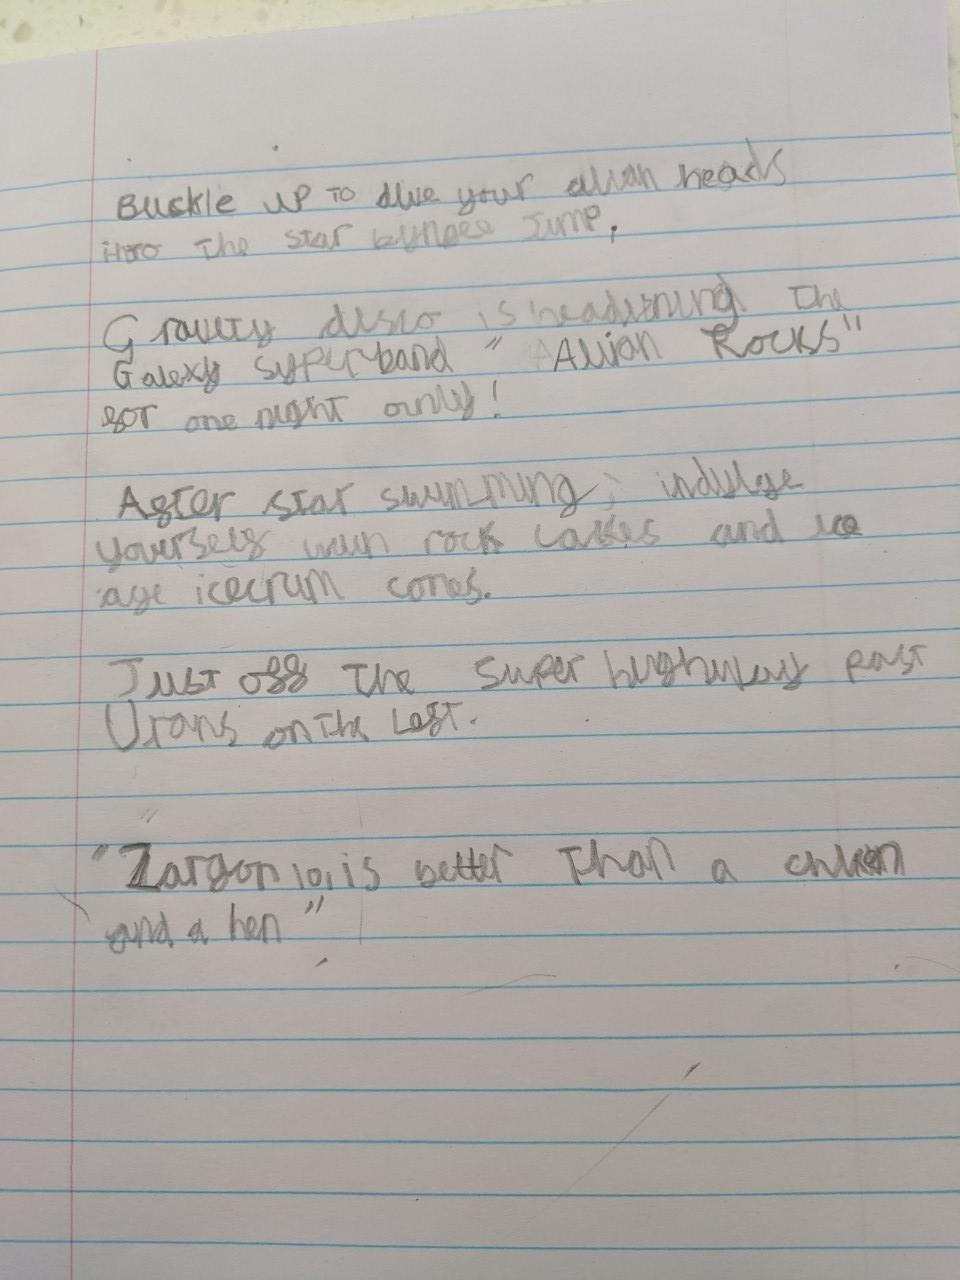 Buckle up to dive your alian heads
into the star bungee Jump.
Gravity disco is headlining the
Galexy superband " Alian Rocks"
for one night only!
After star swimming, indulge
yourself with rock cakes and ice
age icecrum cones.
Just off the super highway past
Urans on the Left.
"Zargon 101 is better than a chicken
and a hen"